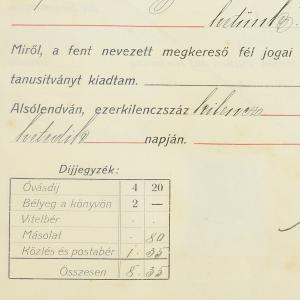 betünk
Miről, a fent nevezett megkereső fél jogai
tanusitványt kiadtam.
Alsólendván, ezerkilenczszáz kilencz
napján.
Díjjegyzék:
Óvásdíj 4 20
Bélyeg a könyvön 2 —
Vitelbér . .
Másolat . 80
Közlés és postabér 1 35
Összesen 8 35